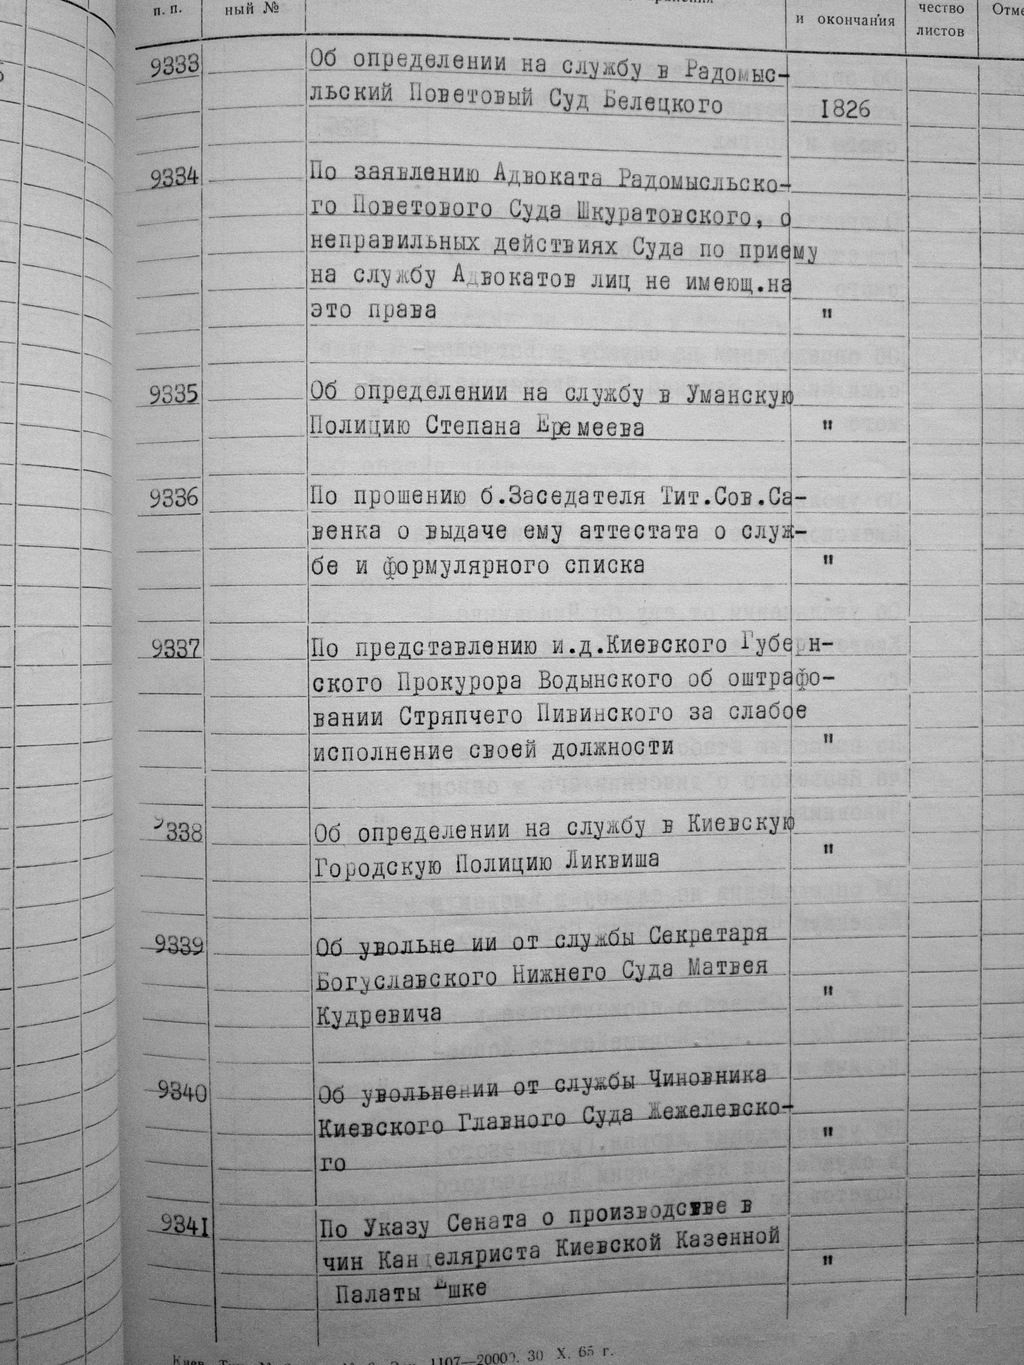 п. п. ный № и окончания чество листов Отме
9333 Об определении на службу в Радомыс-
льский Поветовый Суд Белецкого 1826
9334 По заявлению Адвоката Радомысльско-
го Поветового Суда Шкуратовского, о
неправильных действиях Суда по приему
на службу Адвокатов лиц не имеющ.на
это права "
9335 Об определении на службу в Уманскую
Полицию Степана Еремеева "
9336 По прошению б.Заседателя Тит.Сов.Са-
венка о выдаче ему аттестата о служ-
бе и формулярного списка "
9337 По представлению и.д.Киевского Губерн-
ского Прокурора Водынского об оштрафо-
вании Стряпчего Пивинского за слабое
исполнение своей должности "
9338 Об определении на службу в Киевскую
Городскую Полицию Ликвиша "
9339 Об увольне ии от службы Секретаря
Богуславского Нижнего Суда Матвея
Кудревича "
9340 Об увольнении от службы Чиновника
Киевского Главного Суда Жежелевско-
го "
9341 По Указу Сената о производстве в
чин Канцеляриста Киевской Казенной
Палаты "
1107—20000. 30 X. 65 г.